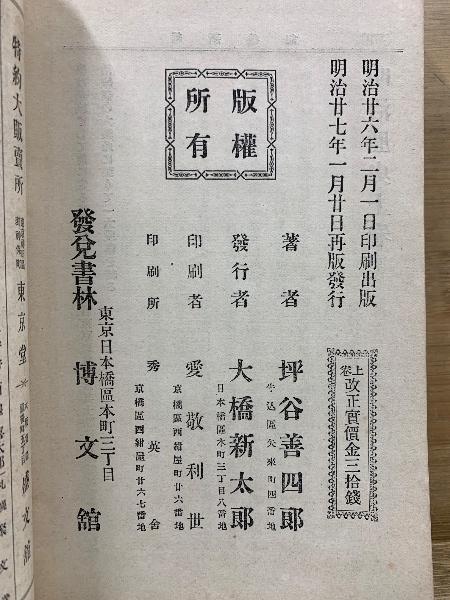 明治廿六年二月一日印刷出版
明治廿七年一月廿日再版發行
版權
所有
上卷 改正實價金三拾錢
著者 坪谷善四郎
牛込區矢來町四番地
發行者 大橋新太郎
日本橋區本町三丁目八番地
印刷者 愛敬利世
京橋區西紺屋町廿六番地
印刷所 秀英舍
京橋區西紺屋町廿六七番地
東京日本橋區本町三丁目
發兌書林 博文舘
特約大販賣所
東京堂
盛文舘